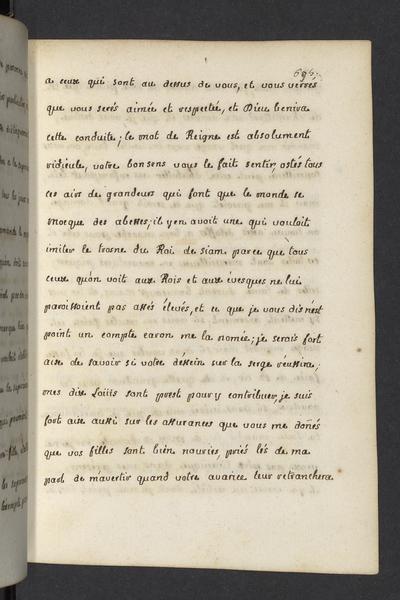 695.
a ceux qui sont au dessus de vous, et vous verrés
que vous serés aimée et respectée, et Dieu benira
cette conduite; le mot de Reigne est absolument
ridicule, votre bon sens vous le fait sentir, ostés tous
ces airs de grandeurs qui font que le monde se
mocque des abesses; il y en avoit une qui vouloit
imiter le trosne du Roi de Siam parce que tous
ceux qu'on voit aux Rois et aux évesques ne lui
paroissoient pas assés élevés, et ce que je vous dis n'est
point un compte car on me la nomée; je serais fort
aise de savoir si votre dessein sur la serge réussira;
mes dix Loüis sont prest pour y contribuer, je suis
fort aise aussi sur les assurances que vous me donés
que vos filles sont bien nouries, priés les de ma
part de m'avertir quand votre avarice leur retranchera